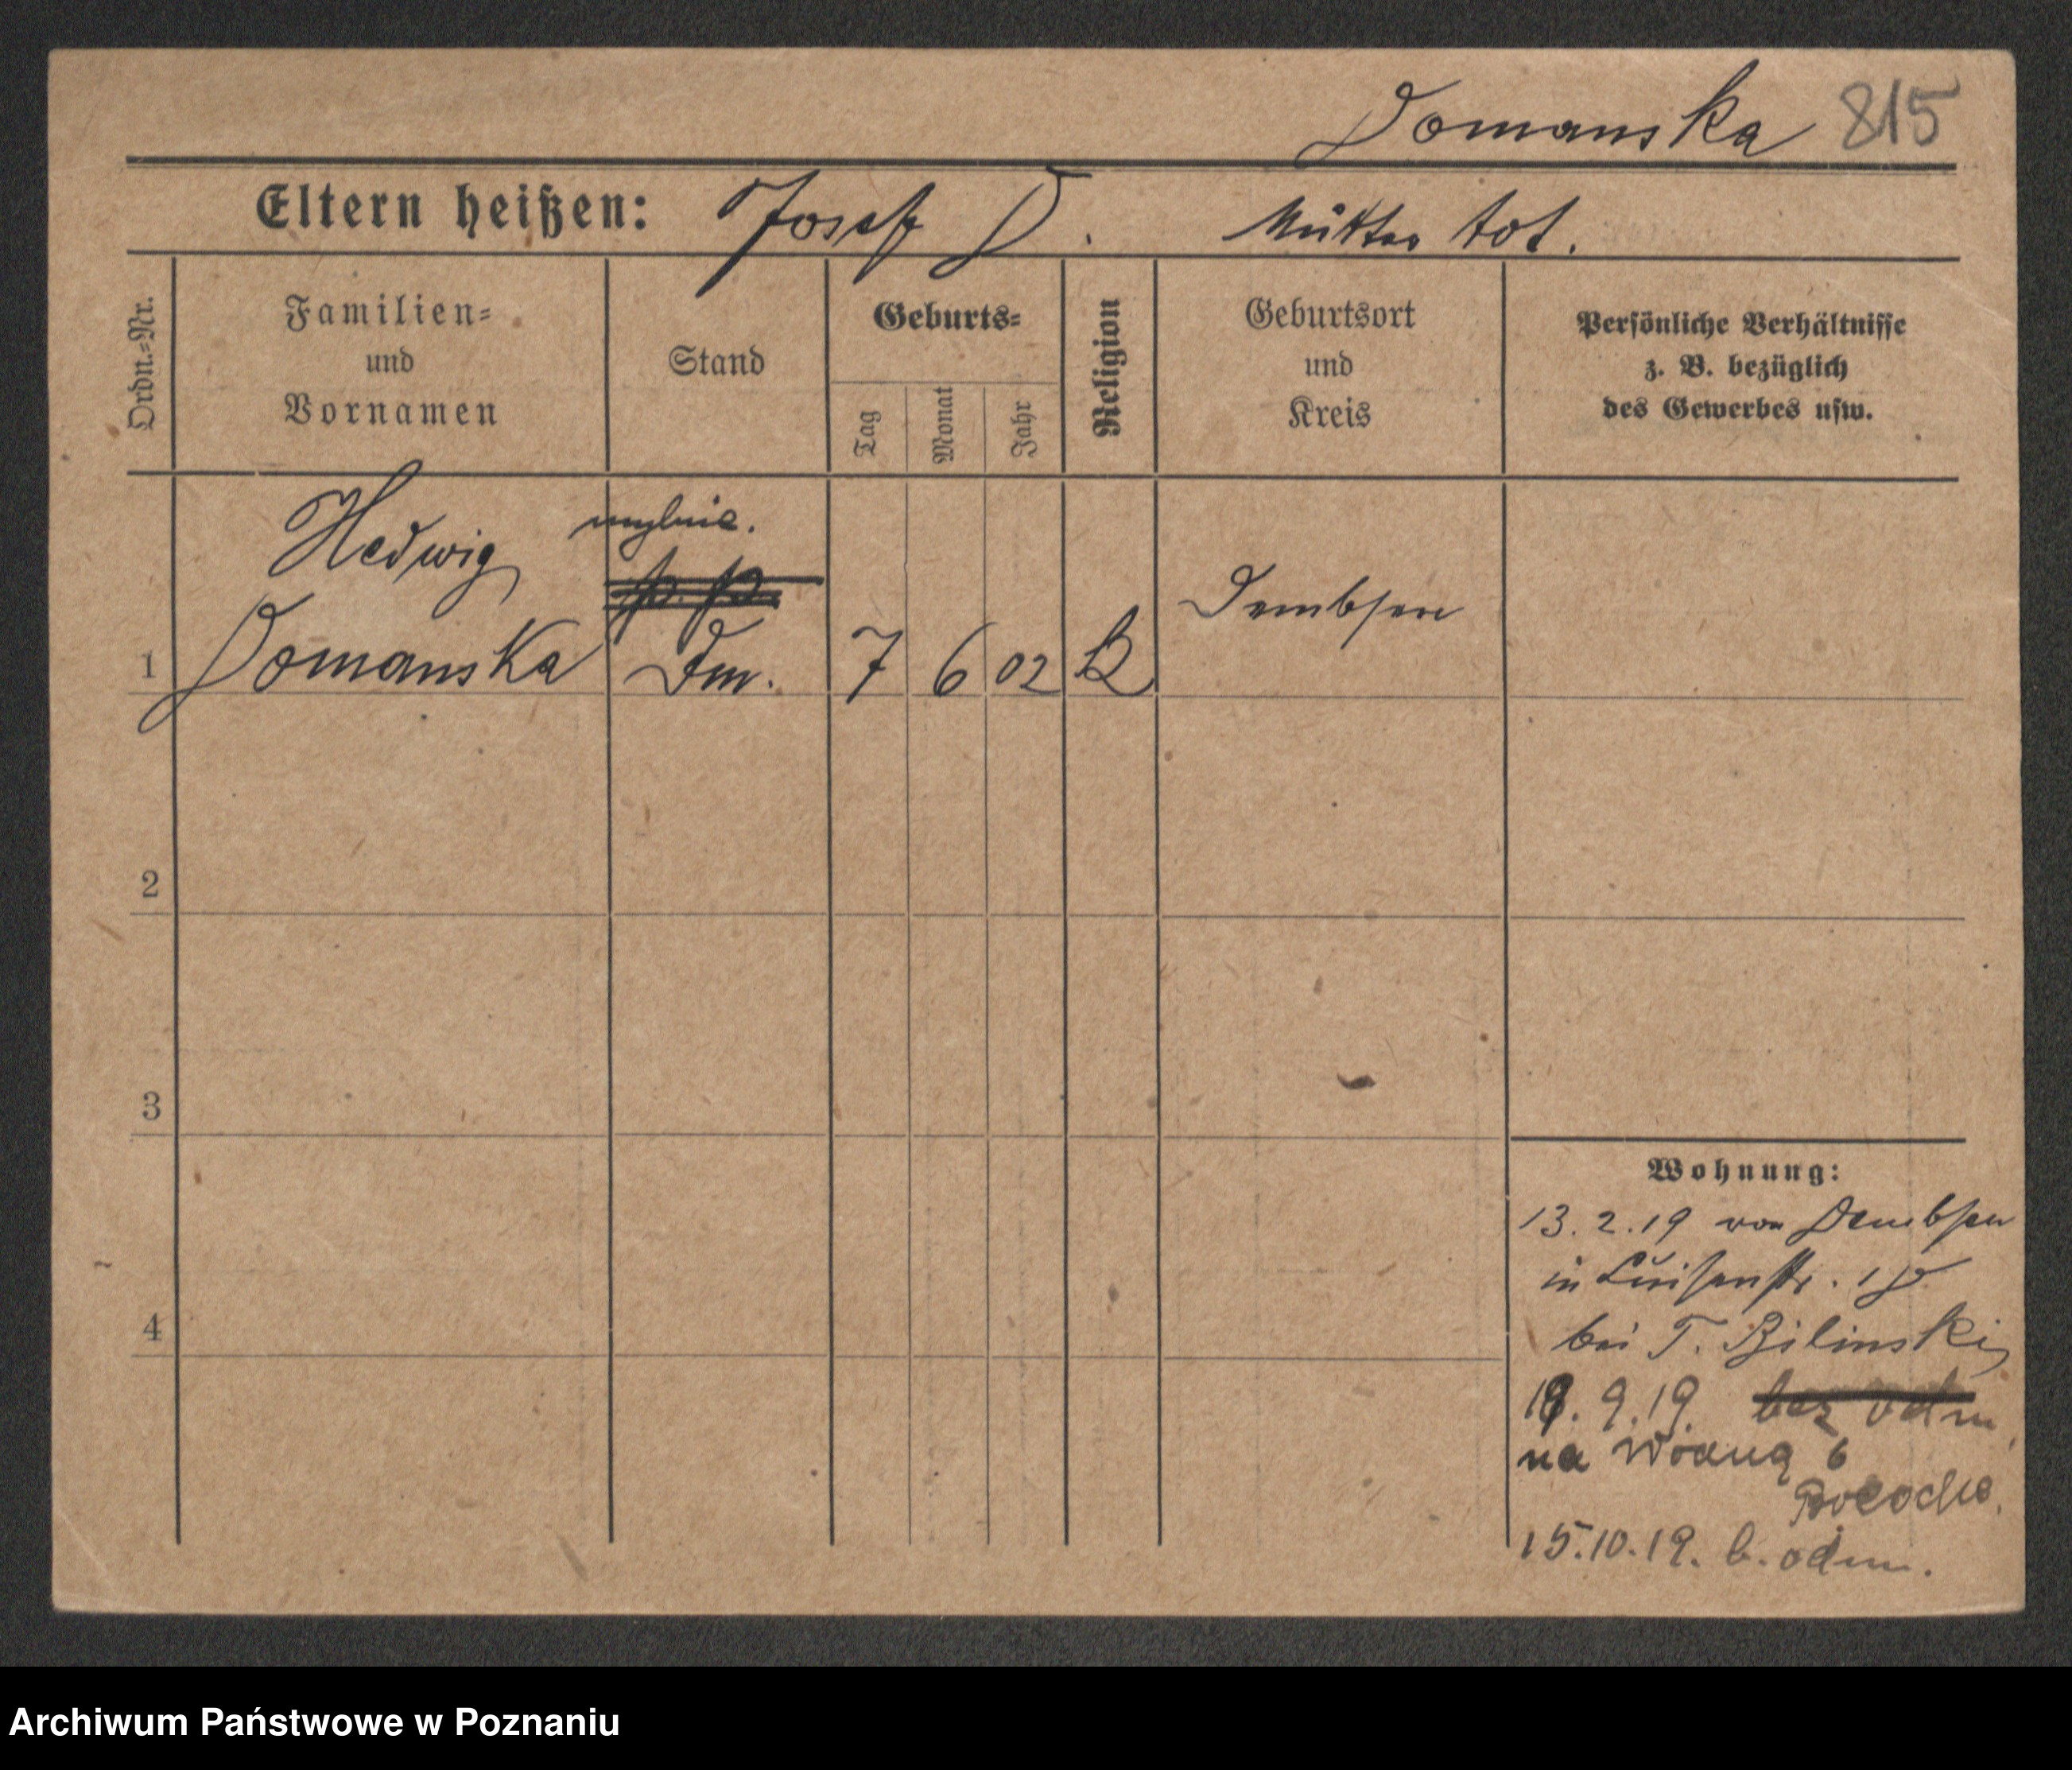 Domanska 815
Eltern heißen: Josef D. Mutter tot.
Ordn.=Nr.
Familien=
und
Vornamen
Stand
Geburts=
Tag
Monat
Jahr
Religion
Geburtsort
und
Kreis
Persönliche Verhältnisse
z. B. bezüglich
des Gewerbes usw.
Hedwig
mylnie.
p. p.
Dembsen
1 Domanska Dm. 7 6 02 K
2
3
4
Wohnung:
13.2.19 von Dembsen
in Luisenstr. 1
bei T. Bilinski
9.19. bez odm
na Wodną 6
15.10.19. b. odm.
Archiwum Państwowe w Poznaniu